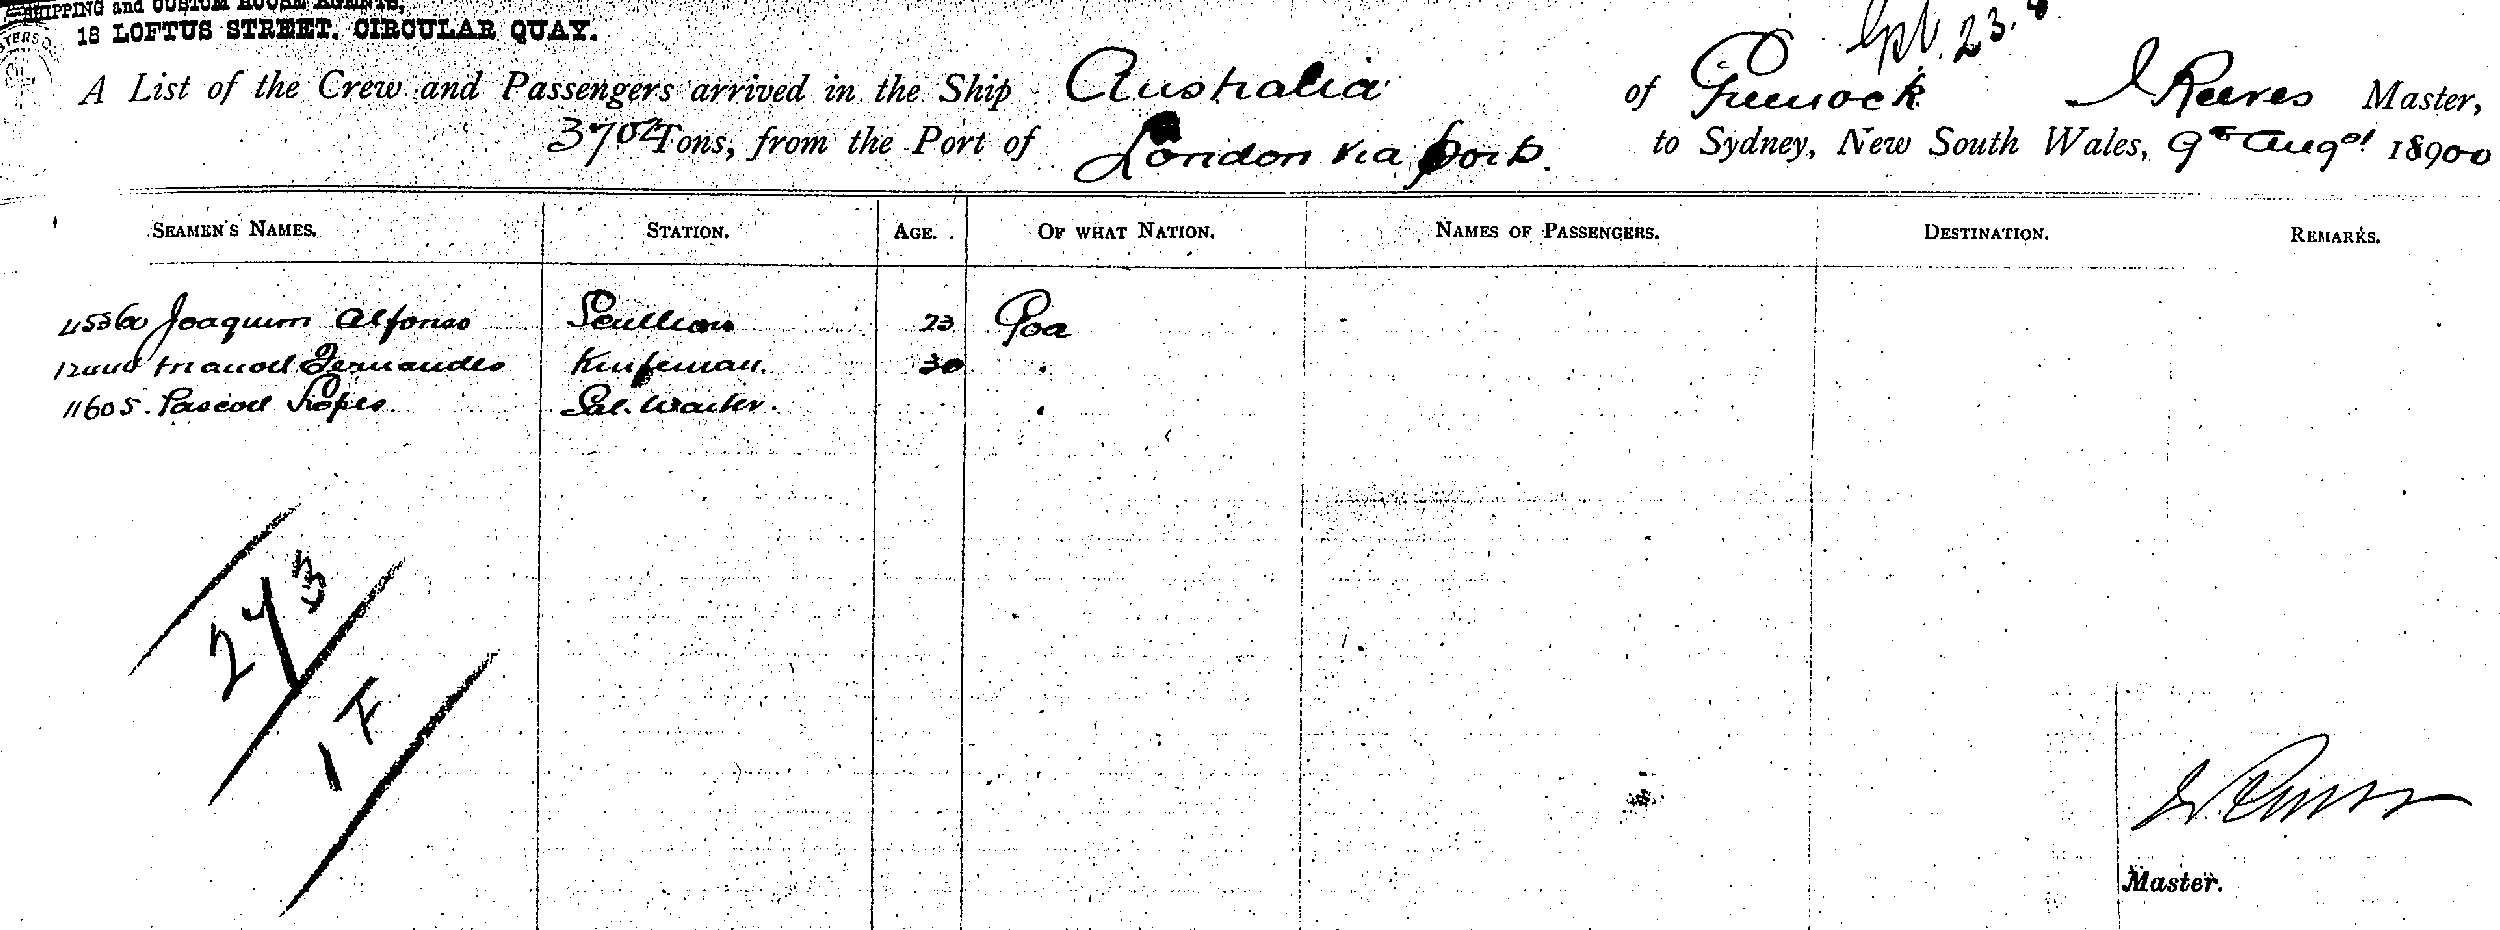 SHIPPING and CUSTOM HOUSE AGENTS,
18 LOFTUS STREET. CIRCULAR QUAY.
23.
A List of the Crew and Passengers arrived in the Ship Australia of Greenock J Reeves Master,
3704 Tons, from the Port of London via ports. to Sydney, New South Wales, 9th Augst 18900
SEAMEN'S NAMES. STATION. AGE. OF WHAT NATION. NAMES OF PASSENGERS. DESTINATION. REMARKS.
Joaquim Alfonso Scullion 23 Goa
Manoel Fernandes Knifeman. 30
11605. Pascoal Lopes Sal. Waiter.
243
1 F
Master.